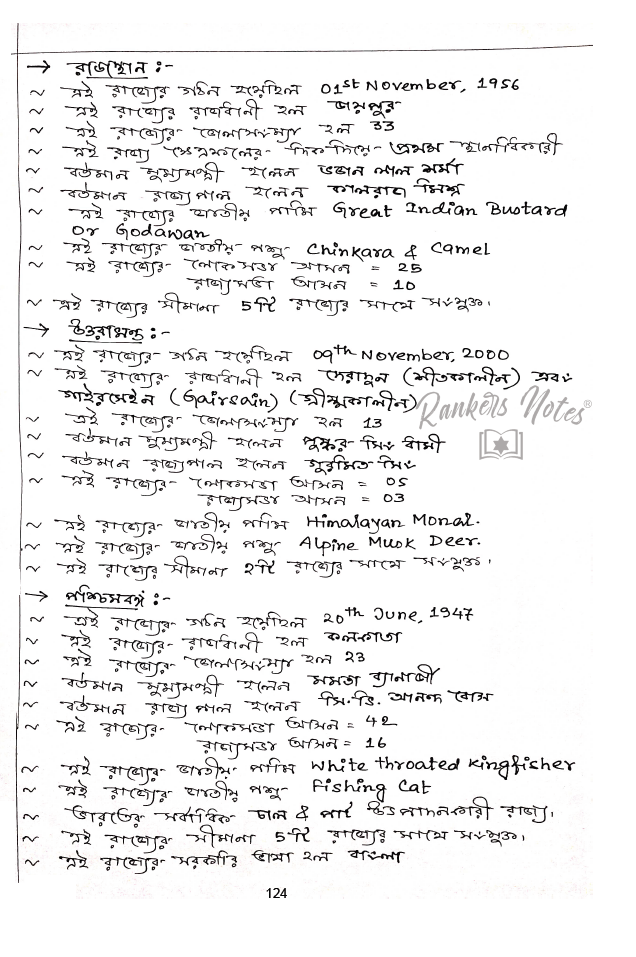 → রাজস্থান :-
~ এই রাজ্যের গঠন হয়েছিল 01st November, 1956
~ এই রাজ্যের রাজধানী হল জয়পুর
~ এই রাজ্যের জেলাসংখ্যা হল 33
~ এই রাজ্য ক্ষেত্রফলের দিক দিয়ে প্রথম স্থানাধিকারী
~ বর্তমান মুখ্যমন্ত্রী হলেন ভজন লাল শর্মা
~ বর্তমান রাজ্যপাল হলেন কালরাজ মিশ্র
~ এই রাজ্যের জাতীয় পাখি Great Indian Bustard
or Godawan
~ এই রাজ্যের জাতীয় পশু Chinkara & Camel
~ এই রাজ্যের লোকসভা আসন = 25
রাজ্যসভা আসন = 10
~ এই রাজ্যের সীমানা 5টি রাজ্যের সাথে সংযুক্ত।
→ উত্তরাখন্ড :-
~ এই রাজ্যের গঠন হয়েছিল 09th November, 2000
~ এই রাজ্যের রাজধানী হল দেরাদুন (শীতকালীন) এবং
গাইরসেইন (Gairsain) (গ্রীষ্মকালীন)
~ এই রাজ্যের জেলাসংখ্যা হল 13
~ বর্তমান মুখ্যমন্ত্রী হলেন পুষ্কর সিং ধামী
~ বর্তমান রাজ্যপাল হলেন গুরমিত সিং
~ এই রাজ্যের লোকসভা আসন = 05
রাজ্যসভা আসন = 03
~ এই রাজ্যের জাতীয় পাখি Himalayan Monal.
~ এই রাজ্যের জাতীয় পশু Alpine Musk Deer.
~ এই রাজ্যের সীমানা 2টি রাজ্যের সাথে সংযুক্ত।
Rankers Notes®
→ পশ্চিমবঙ্গ :-
~ এই রাজ্যের গঠন হয়েছিল 20th June, 1947
~ এই রাজ্যের রাজধানী হল কলকাতা
~ এই রাজ্যের জেলাসংখ্যা হল 23
~ বর্তমান মুখ্যমন্ত্রী হলেন মমতা ব্যানার্জী
~ বর্তমান রাজ্যপাল হলেন সি.ভি. আনন্দ বোস
~ এই রাজ্যের লোকসভা আসন = 42
রাজ্যসভা আসন = 16
~ এই রাজ্যের জাতীয় পাখি White throated Kingfisher
~ এই রাজ্যের জাতীয় পশু Fishing Cat
~ ভারতের সর্বাধিক চাল & পাট উৎপাদনকারী রাজ্য।
~ এই রাজ্যের সীমানা 5টি রাজ্যের সাথে সংযুক্ত।
~ এই রাজ্যের সরকারি ভাষা হল বাংলা
124